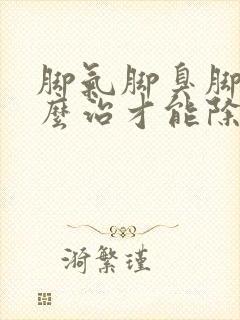 脚氣脚臭脚
麼治才能除
漪繁瑾